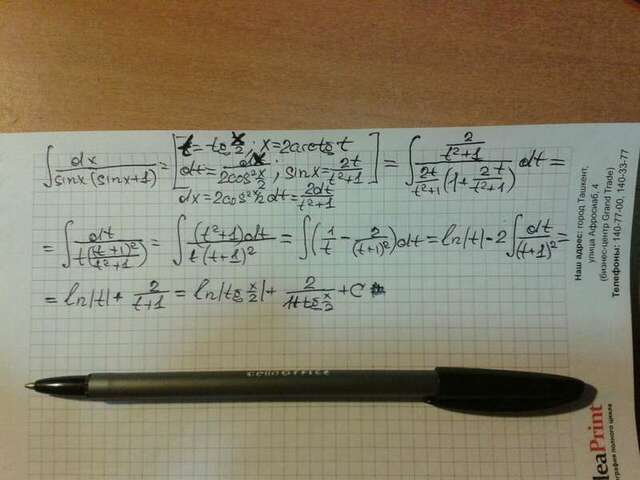 ∫ dx/(sinx(sinx+1)) = [t=tg x/2; x=2arctg t
dt = dx/(2cos² x/2); sinx = 2t/(t²+1)
dx = 2cos² x/2 dt = 2dt/(t²+1)] = ∫ (2/(t²+1))/((2t/(t²+1))(1+2t/(t²+1))) dt =
= ∫ dt/(t((t+1)²/(t²+1))) = ∫ (t²+1)dt/(t(t+1)²) = ∫(1/t - 2/(t+1)²)dt = ln|t| - 2∫ dt/(t+1)² =
= ln|t| + 2/(t+1) = ln|tg x/2| + 2/(1+tg x/2) + C
cello OFFICE
Наш адрес: город Ташкент,
улица Афросиаб, 4
(бизнес-центр Grand Trade)
Телефоны: 140-77-00, 140-33-77
deaPrint
графия полного цикла